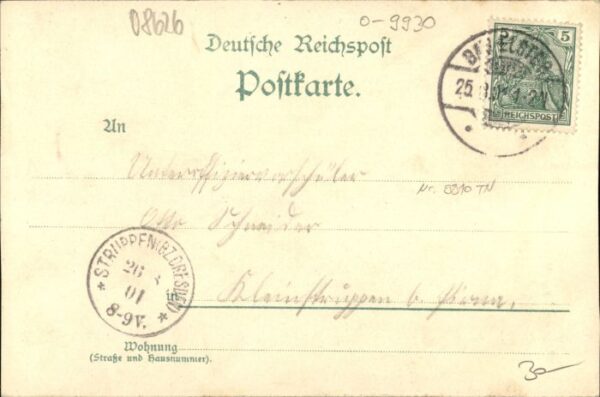 08626
0-9930
Deutsche Reichspost
Postkarte.
5
REICHSPOST
25
An
Unteroffiziervorschüler
Otto Schneider
Nr. 5310 TN
STRUPPEN (BZ. DRESDEN)
26
01
8-9V.
in Kleinstruppen b. Pirna.
Wohnung
(Straße und Hausnummer).
30-